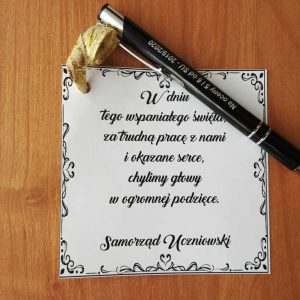 Na oceny 5 i 6 od SU - 2019/2020
W dniu
Tego wspaniałego święta,
za trudną pracę z nami
i okazane serce,
chylimy głowy
w ogromnej podzięce.
Samorząd Uczniowski